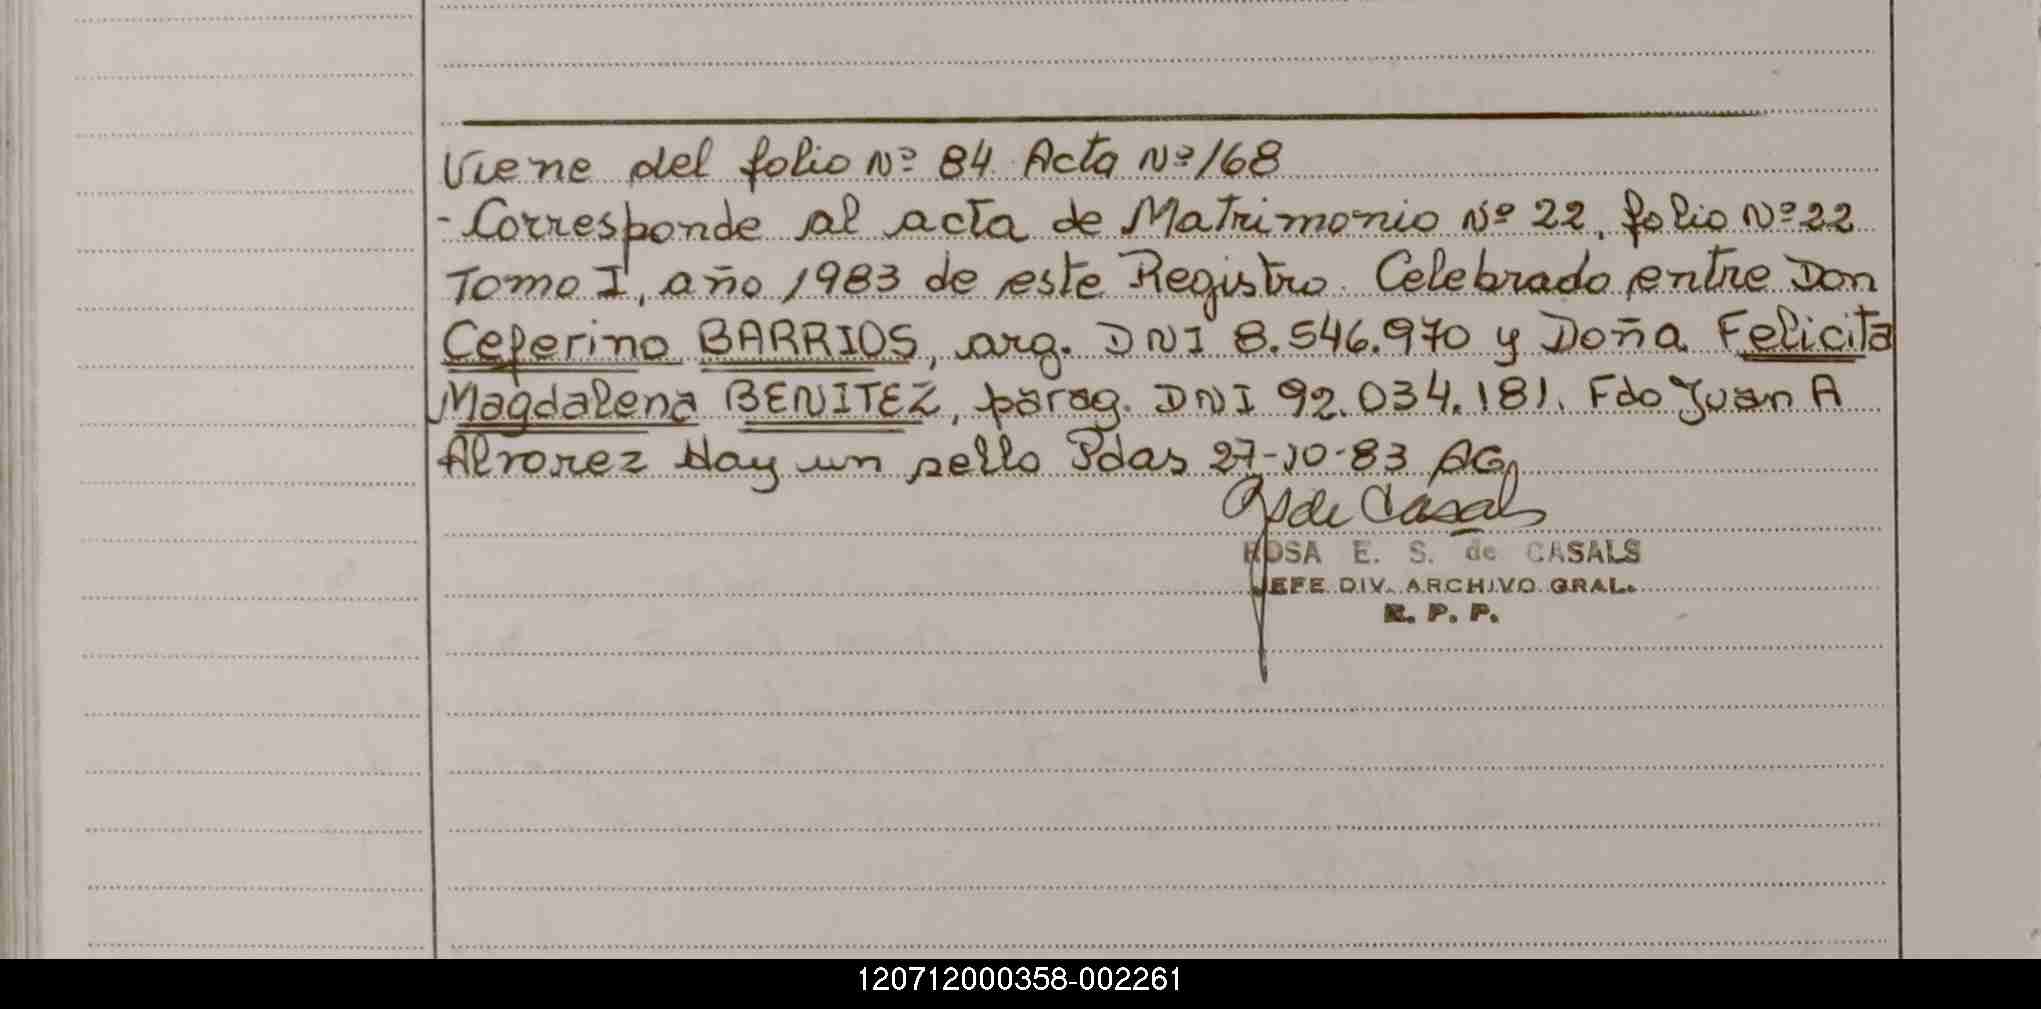 Viene del folio Nº 84 Acta Nº 168
- Corresponde al acta de Matrimonio Nº 22, folio Nº 22
Tomo I, año 1983 de este Registro. Celebrado entre Don
Ceferino BARRIOS, arg. DNI 8.546.970 y Doña Felicita
Magdalena BENITEZ, parag. DNI 92.034.181. Fdo Juan A
Alvarez Hay un sello Pdas 27-10-83 AG
de Casals
ROSA E. S. de CASALS
JEFE DIV. ARCHIVO GRAL.
R. P. P.
120712000358-002261